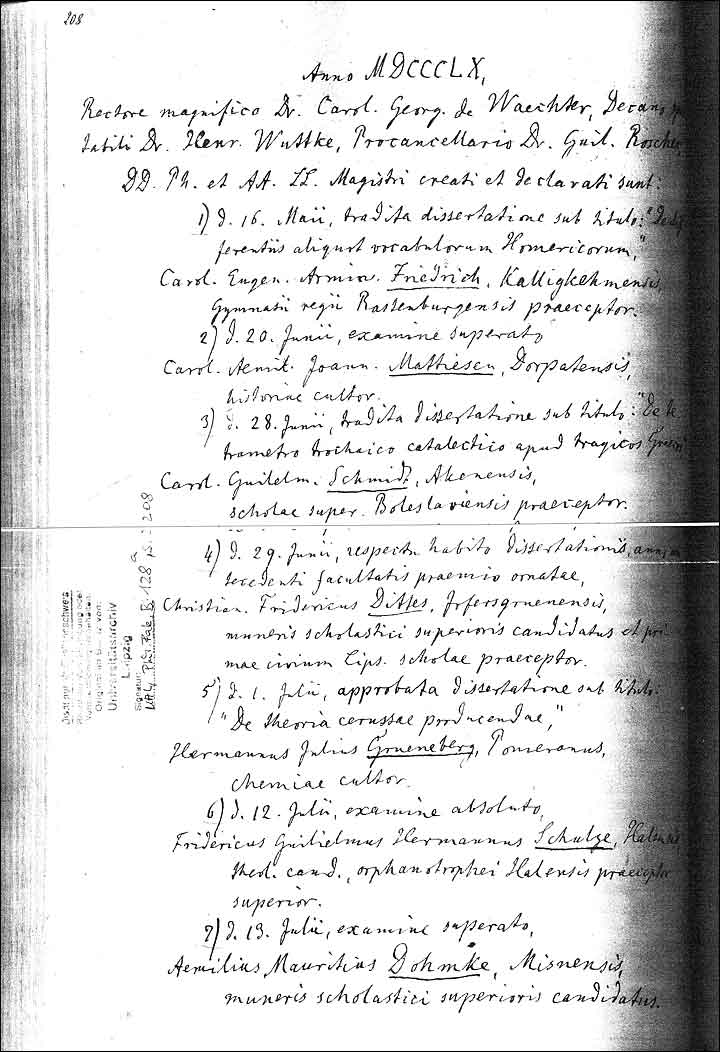 208
Anno MDCCCLX,
Rectore magnifico Dr. Carol. Georg. de Waechter, Decano
tabili Dr. Henr. Wuttke, Procancellario Dr. Guil. Roscher,
DD. Ph. et AA. LL. Magistri creati et declarati sunt:
1) d. 16. Maii, tradita dissertatione sub titulo: "De dif
ferentiis aliquot vocabulorum Homericorum,"
Carol. Eugen. Armin. Friedrich, Kalligkehmensis,
Gymnasii regii Rastenburgensis praeceptor.
2) d. 20. Junii, examine superato
Carol. Aemil. Joann. Mattiesen, Dorpatensis,
historiae cultor.
3) d. 28. Junii, tradita dissertatione sub titulo: "De te
trametro trochaico catalectico apud tragicos
Carol. Guilelm. Schmidt, Akenensis,
scholae super. Boleslaviensis praeceptor.
4) d. 29. Junii, respectu habito dissertationis,
tecedenti facultatis praemio ornatae,
Christian. Fridericus Dittes, Irfersgruenensis,
muneris scholastici superioris candidatus et pri
mae civium Lips. scholae praeceptor.
5) d. 1. Julii, approbata dissertatione sub titulo:
"De theoria cerussae producendae,"
Hermannus Julius Grueneberg, Pomeranus,
chemiae cultor.
6) d. 12. Julii, examine absoluto,
Fridericus Guilielmus Hermannus Schulze, Halensis
theol. cand., orphanotrophei Halensis praeceptor
superior.
7) d. 13. Julii, examine superato,
Aemilius Mauritius Dohmke, Misnensis,
muneris scholastici superioris candidatus.
Universitätsarchiv
Leipzig
Signatur:
UAL, Phil. Fak. B 128a, S. 208